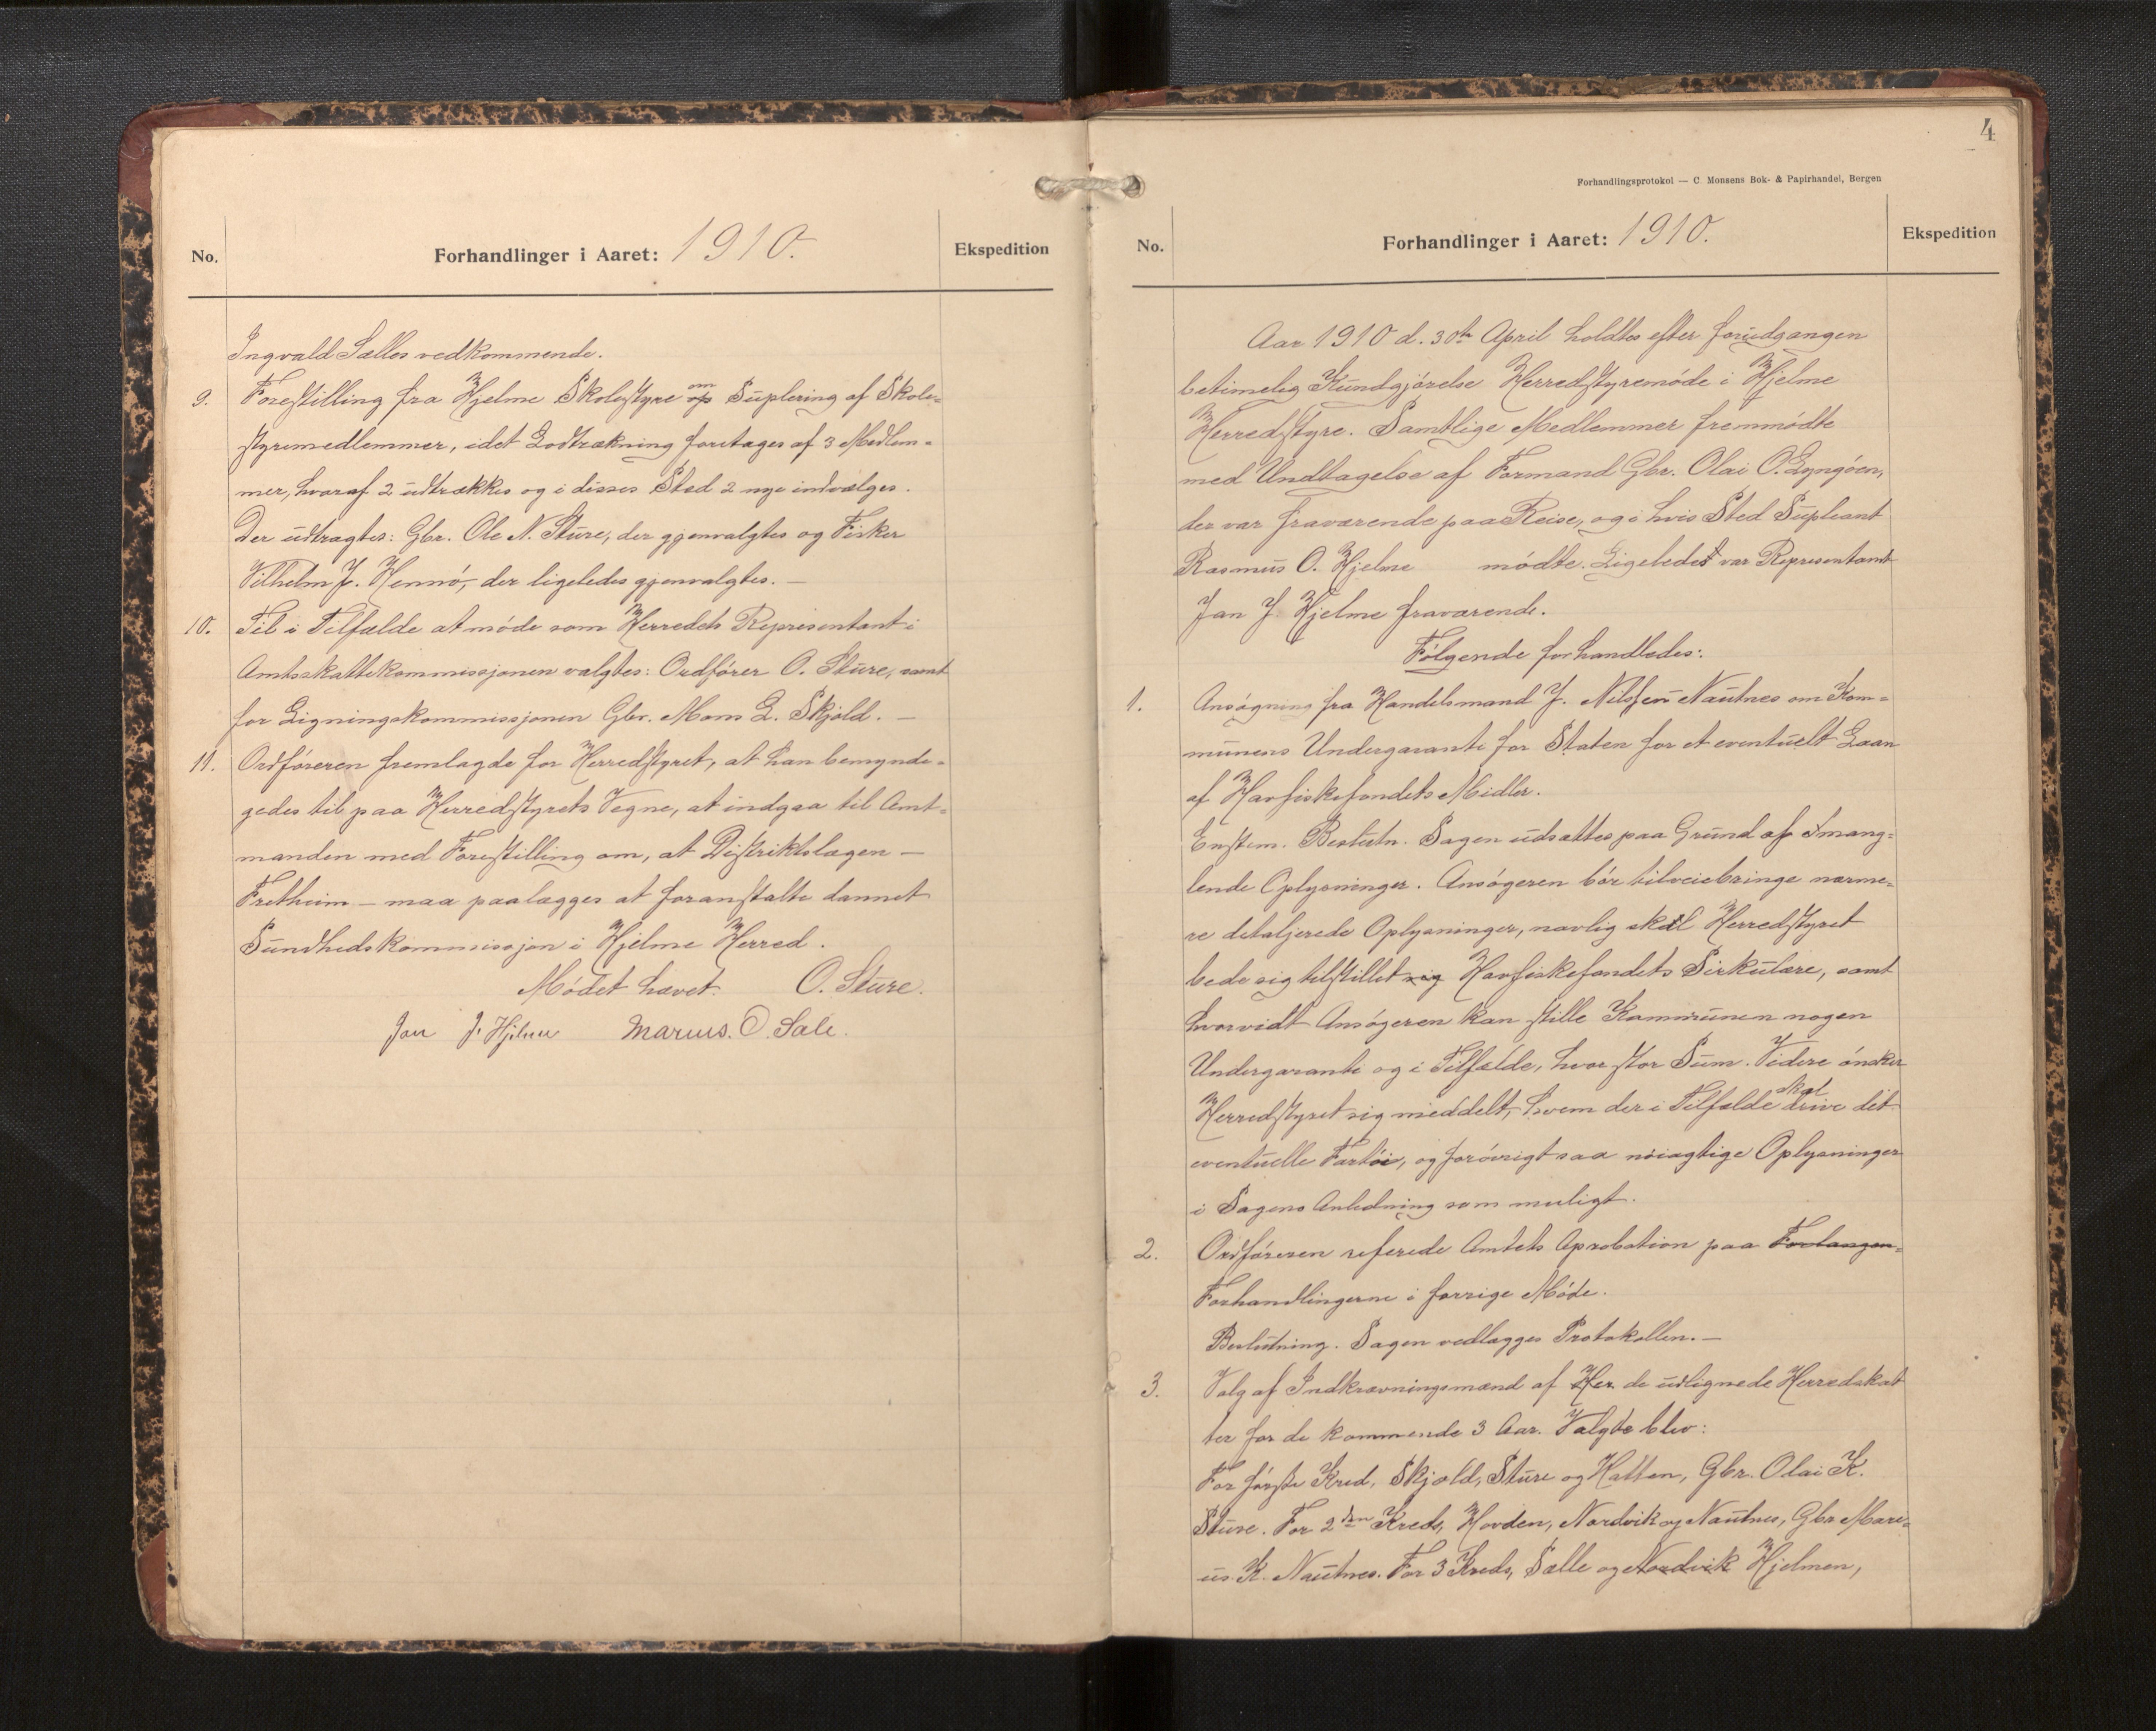 No.
Forhandlinger i Aaret: 1910.
Ekspedition
Ingvald Sælles vedkommende.
9. Forestilling fra Hjelme Skolestyre om Suplering af Skole-
styremedlemmer, idet Lodtrækning foretages af 3 Medlem-
mer, hvoraf 2 udtrækkes og i disses Sted 2 nye indvælges.
Der udtragtes: Gbr. Ole N. Sture, der gjenvalgtes og Fisker
Vilhelm J. Hennö, der ligeledes gjenvalgtes. —
10. Til i Tilfælde at møde som Herredets Representant i
Amtsskattekommissjonen valgtes: Ordfører O. Sture, samt
for Ligningskommissjonen Gbr. Mons L. Skjold. —
11. Ordføreren fremlagde for Herredstyret, at han bemynde-
gedes til paa Herredstyrets Vegne, at indgaa til Amt-
manden med Forestilling om, at Distriktslægen —
Fretheim — maa paalægges at foranstalte dannet
Sundhedskommissjon i Hjelme Herred.
Mødet hævet. O. Sture.
Jan J. Hjelme Marius. O. Sæle.
4
Forhandlingsprotokol — C. Monsens Bok- & Papirhandel, Bergen
No.
Forhandlinger i Aaret: 1910.
Ekspedition
Aar 1910 d. 30te April holdtes efter forudgangen
betimelig Kundgjørelse Herredstyremøde i Hjelme
Herredstyre. Samtlige Medlemmer fremmødte
med Undtagelse af Formand Gbr. Olai O. Lyngöen,
der var fraværende paa Reise, og i hvis Sted Supleant
Rasmus O. Hjelme mødte. Ligeledes var Representant
Jan J. Hjelme fraværende.
Følgende forhandledes:
1. Ansøgning fra Handelsmand J. Nilssen Nautnes om Kom-
munens Undergaranti for Staten for et eventuelt Laan
af Havfiskefondets Midler.
Enstem. Beslutn. Sagen udsættes paa Grund af mang-
lende Oplysninger. Ansøgeren bör tilveiebringe nærme-
re detaljerede Oplysninger, navlig skal Herredstyret
bede sig tilstillet sig Havfiskefondets Sirkulære, samt
hvorvidt Ansøgeren kan stille Kommunen nogen
Undergaranti og i Tilfælde, hvor stor Sum. Videre ønsker
Herredstyret sig meddelt, hvem der i Tilfælde skal drive det
eventuelle Fartöi, og forövrigt saa nöiagtige Oplysninger
i Sagens Anledning som muligt.
2. Ordföreren referede Amtets Aprobation paa Forlangen-
Forhandlingerne i forrige Møde.
Beslutning. Sagen vedlægges Protokollen. —
3. Valg af Indkrævningsmænd af Her. de udlignede Herredskat
ter for de kommende 3 Aar. Valgte blev:
For förste Kred, Skjold, Sture og Halten, Gbr. Olai K.
Sture. For 2den Kreds, Hovden, Nordvik og Nautnes, Gbr. Mari-
us K. Nautnes. For 3 Kreds, Sælle og Nordvik Hjelmen,